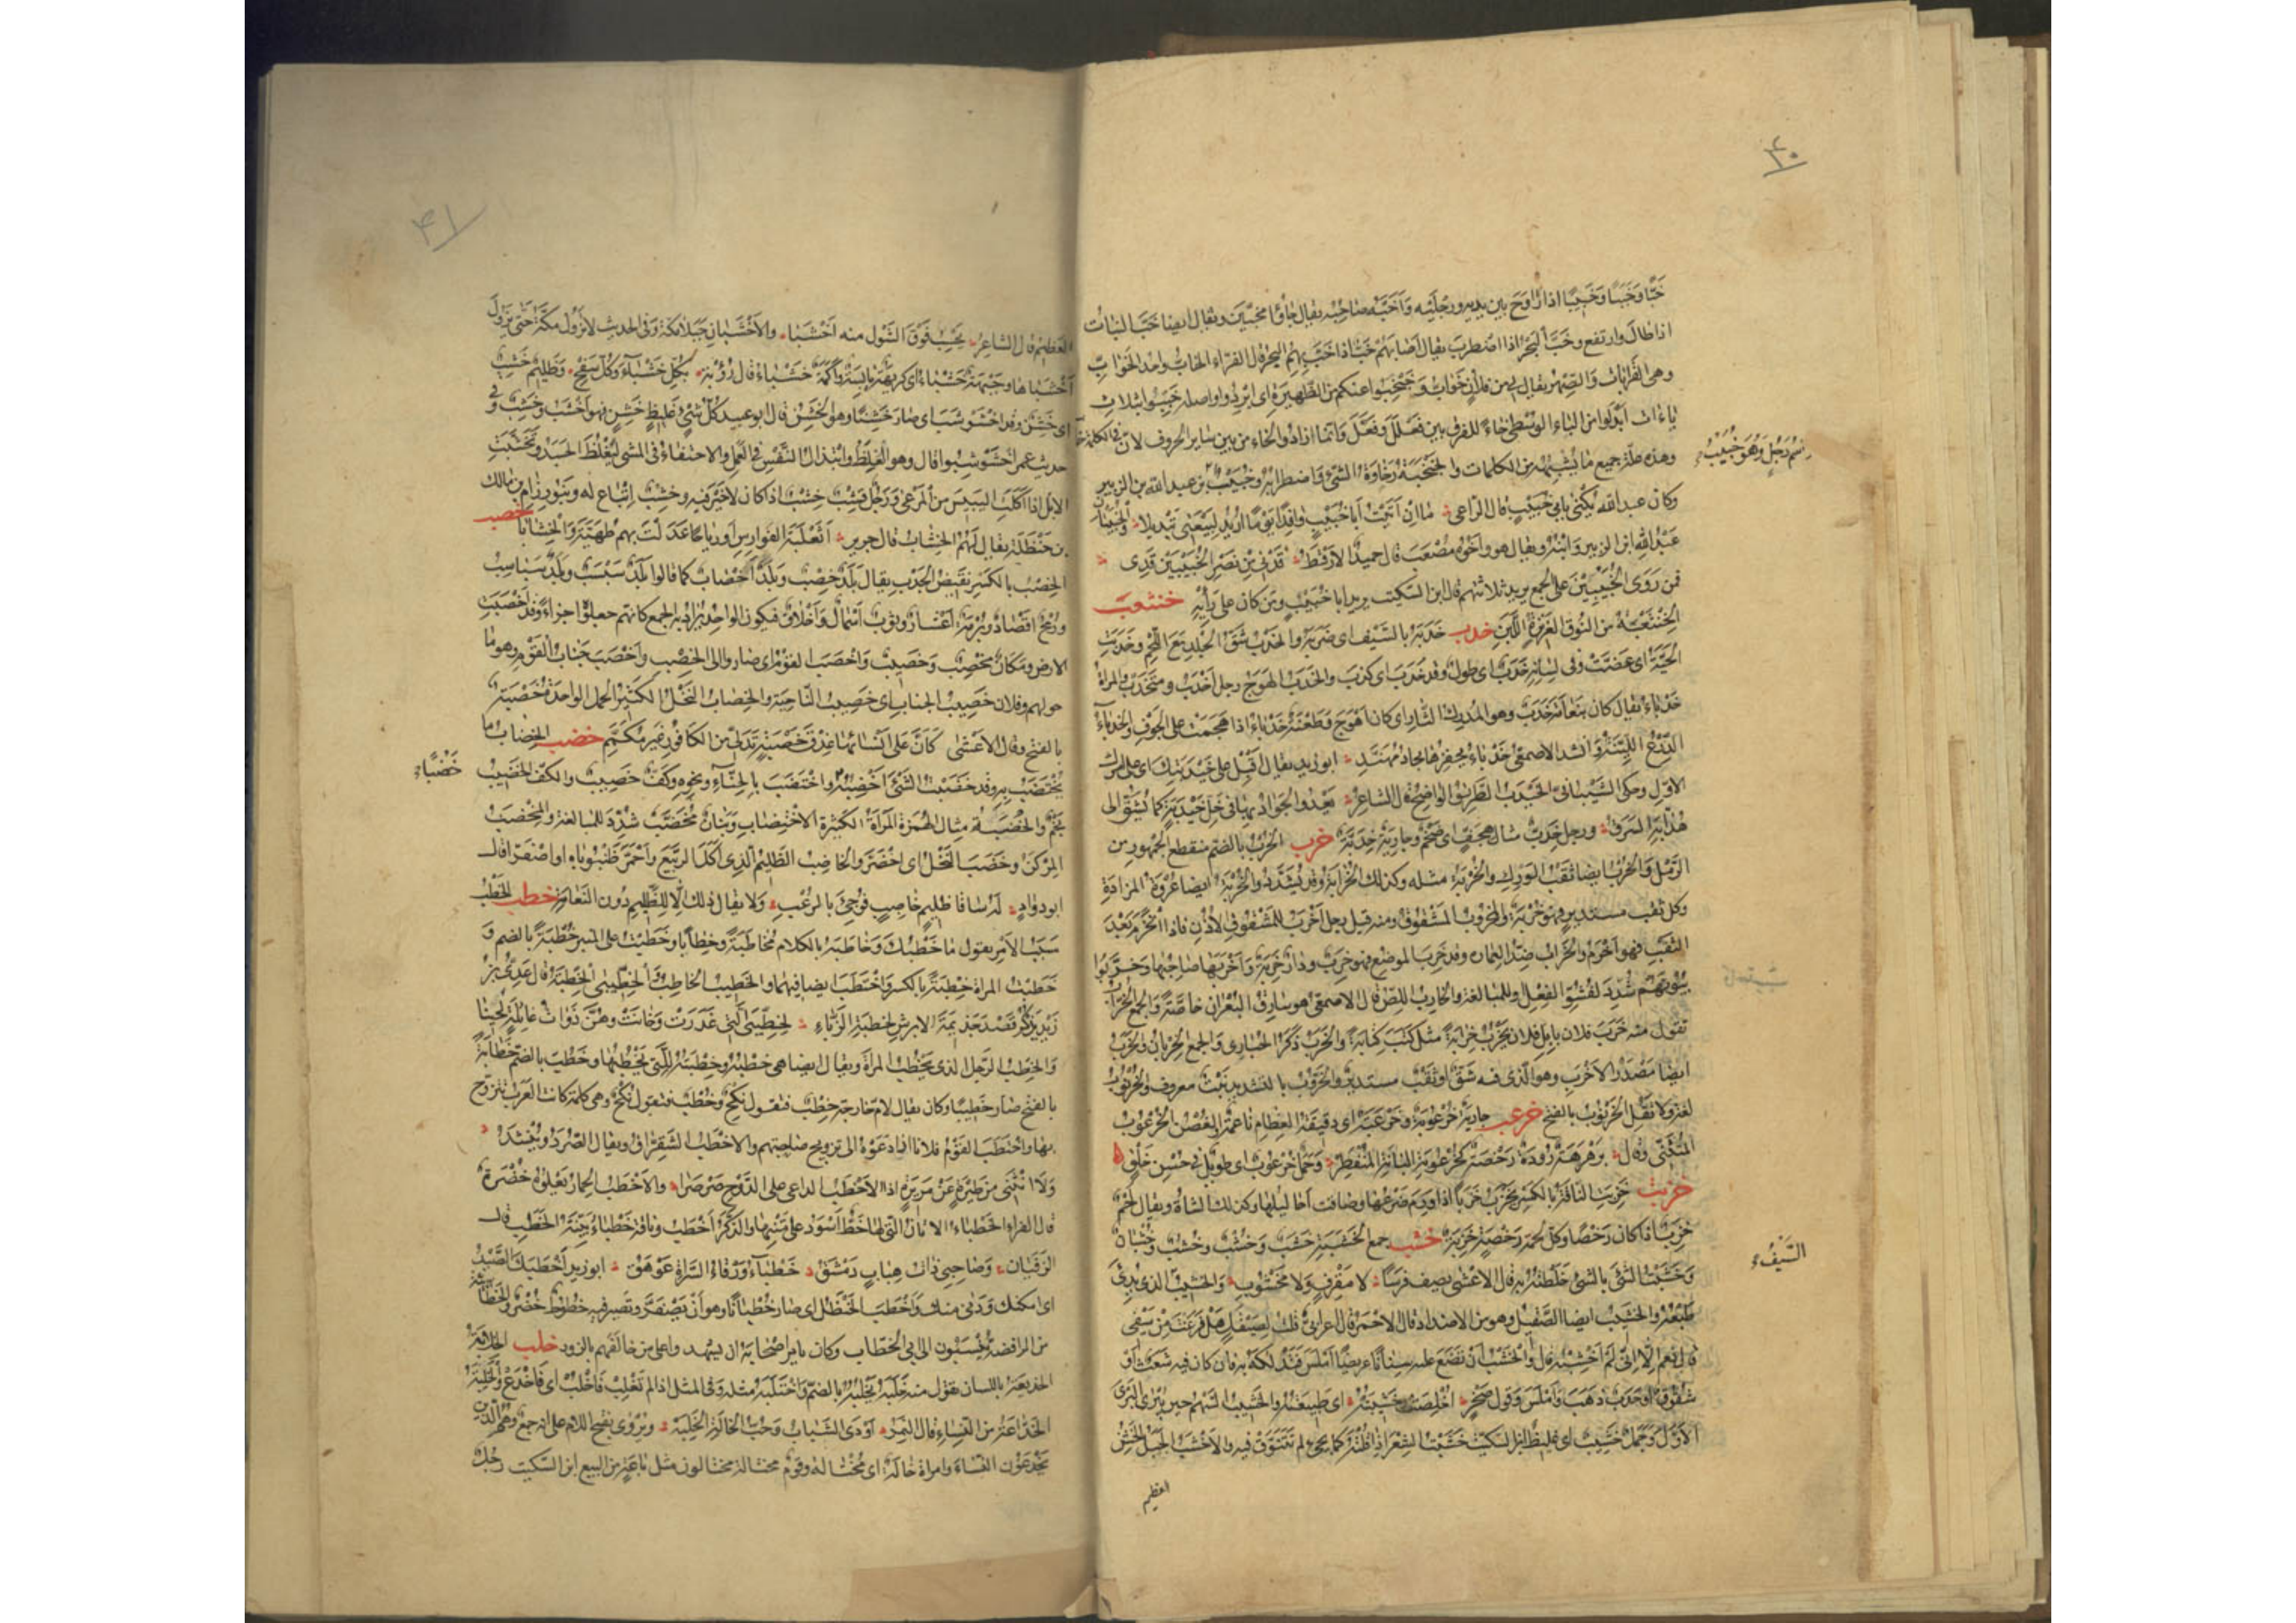 ۴۰
خَبًّا وَخَبَبًا وَخَبِيبًا اذا رَاوَحَ بين يديه ورجلَيْه وَاَخَبَّهُ صَاحِبُه يقال جاؤا مُخِبّين ويقال ايضا خَبَّ النبات
اذا طَالَ وارتفع وخَبَّ البحرُ اذا اضطربَ يقال اَصَابَهُم خِبٌّ اذا خَبَّ بِهِمُ البحرُ قال الفرّاء الخَابُّ واحد الخَوَابّ
وهى القَرَابَات وَالصِّهْر يقال لى من فلان خَوَابٌّ وَخَبْخِبُوا عنكم من الظَّهِيرَةِ اى اَبْرِدُوا واصله خَبِّبُوا بثلاث
باءات اَبْدَلوا من الباء الوُسْطى خاءً للفرق بين فَعْلَلَ وفَعَّلَ وَانّما زادوا الخاء من بين سائر الحروف لانّ فى الكلمة خاءً
وهذه علّة جميع ما يُشْبِهُه من الكلمات والخَبْخَبَةُ رَخَاوَةُ الشئ وَاضطرابُه وخُبَيْبٌ بن عبد الله بن الزبير
اسْمُ رَجُلٍ وَهُوَ خُبَيْبُ
وكان عبد الله يُكْنٰى بابى خُبَيْبٍ قال الرّاعى ما اِنْ اَتَيْتُ اَبَا خُبَيْبٍ وَافِدًا يَوْمًا اُرِيْدُ لِبَيْعَتِى تَبْدِيلا وَالخُبَيْبَان
عَبْدُ الله ابن الزبير وَابْنُهُ ويقال هو وَاَخُوْهُ مُصْعَب قال حميدٌ الارْقَطُ قَدْنِىَ مِنْ نَصْرِ الخُبَيْبَيْنِ قَدِى
فمن رَوَى الخُبَيْبِيْنَ على الجمع يريد ثلاثتهم قال ابن السّكيت يريد ابا خُبَيْبٍ ومَن كان على رَأيِه خنثعب
الخِنْثَعْبَةُ من النُّوق الغَزِيْرَةُ اللَّبَنِ خدب خَدَبَه بالسَّيف اى ضَرَبَه والخَدْبُ شَقُّ الجِلْدِ مَعَ اللَّحم وخَدَبَتِ
الحَيَّة اى عَضَّتْ وفى لِسَانِه خَدَبٌ اى طولٌ وقد خَدَبَ اى كذَبَ والخَدَبُ الهَوَجُ رجل اَخْدَبُ ومُتَخَدِّبٌ والمراةُ
خَدْبَاءُ يقال كان بنَعَامَةَ خَدَبٌ وهو المُدرك الثّار اى كان اَهْوَجَ وطَعْنَةٌ خَدْبَاءُ اذا هَجَمَتْ على الجوف والخَدْبَاءُ
الدِّرْعُ اللَّيِّنَةُ وَانشد الاصمعىّ خَدْبَاءُ يَحفِزُهَا نجادُ مُهَنَّدِ ابوزيد يقال اَقْبِلْ على خَيْدَبَتِكَ اى على امْرك
الاوّل وحكى الشَّيبانىّ الخَيْدَب الطَّريق الواضح قال الشاعر يَعْدُو الجَوَادُ بِهَا فى خَلِّ خَيْدَبَةٍ كما يُشَقُّ الى
هُدَّابِهِ السَّرَقُ ورجل خِدَبٌّ مثال هِجَفٍّ اى ضَخْمٌ وجارية خِدَبَّةٌ خرب الخُرْبُ بالضم منقطع الجُمهور من
الرَّمْل وَالخُرْب ايضا ثَقْبُ الوَرِك والخُرْبَة مثله وكذلك الخُرَابَة وقد يُشَدَّد والخُرْبَة ايضا عُرْوَةُ المَزَادَةِ
وكل ثَقْب مستدير فهو خُرْبَةٌ والمَخْرُوْب المَشْقُوق ومنه قيل رجل اَخْرَبُ للمَشْقُوق الأُذُنِ فاذا انْخَرَمَ بَعْدَ
الثَّقْب فهو اَخْرَم والخَرَاب ضِدُّ العِمَارَه وقد خَرِبَ الموضع فهو خَرِبٌ ودارٌ خَرِبَةٌ وَاَخْرَبَهَا صَاحِبُها وخَرَّبُوا
بُيُوْتَهُمْ شُدِّدَ لِفُشُوِّ الفِعْل وللمبالغة والخَارِبُ اللِّصُّ قال الاصمعى هو سارق البُعْرَان خاصّةً والجمع الخُرَّابُ
تقول منه خَرَبَ فلان بابِل فلان يَخْرُبُ خِرَابَةً مثل كَتَبَ كِتَابَةً والخَرَبُ ذَكَرُ الحُبَارى وَالجمع الخِرْبان والخَرَب
ايضا مَصْدَر الاَخْرَب وهو الّذى فيه شَقٌّ او ثَقْبٌ مستدير والخَرُّوْب بالتشديد نَبْتٌ معروف والخُرْنُوْبُ
لغة ولا تَقُل الخَرْنُوب بالفتح خرعب جارية خُرْعُوْبَةٌ وخَرْعَبَةٌ اى دقيقة العِظَام ناعمة والغُصْن الخُرْعُوْب
المُتَثَنِّى وقال بَرَهْرَهَةٌ رُودَةٌ رَخْصَةٌ كخُرْعُوبَةِ البَانَةِ المُنْفَطِرْ وَجَمَلٌ خُرْعُوبٌ اى طويل فى حُسْنِ خَلْقٍ
خزب خَزِبَتِ النّاقَةُ بالكسر تخْزَبُ خَزَبًا اذا وَرِمَ ضَرْعُها وضاقت اَحَاليلها وكذلك الشّاةُ ويقال لحمٌ
خَزِبٌ اذا كان رَخْصًا وكلّ لحمةٍ رَخْصَةٍ خَزِبَةٌ خشب جمع الخَشَبَةِ خَشَبٌ وَخُشُبٌ وخُشْبٌ وخُشْبانٌ
وَخَشَبْتُ الشَّئَ بالشئ خَلَطْتُهُ به قال الاَعْشى يصف فَرسًا لا مُقْرِفٍ وَلا مَخْشُوْبِ وَالخَشِيْبُ الذى بُدِئَ
السَّيْفُ
طَبْعُهُ والخَشِيْب ايضا الصَّقِيل وهو من الاضداد قال الاحمر قال اعرابىٌّ قلت لِصَيْقَلٍ هَلْ فَرَغْتَ مِنْ سَيْفى
قال نعم اِلّا اَنّى لَمْ اَخْشِبْه قال وَالخَشْبُ اَنْ تَضَعَ عليه سِنَانًا عَرِيضًا اَمْلَسَ فَتَدْلُكَهُ به فان كان فيه شَعَثٌ اَوْ
شُقُوْقٌ اَوْ حَدَبٌ ذَهَبَ وَامْلَسَّ وَقول صَخْرٍ اُخْلِصَتْ خَشِيْبَتُهُ اى طَبِيعَتُهُ والخَشِيْب السَّهْم حين يُبْرٰى البَرْىَ
الاوّلَ وجَمَلٌ خَشِيْبٌ اى غليظٌ ابن السّكيت خَشَبْتُ الشِّعْرَ اِذا قُلْتَهُ كما يَجِئُ لم تَتَنَوَّقْ فيه والاَخْشَبُ الجَبَل الخَشِنُ
العظيم
۴۱
العَظيم قال الشاعر تَحْسِبُ فَوْقَ الشَّوْلِ منه اَخْشَبَا والاَخْشَبَانِ جَبَلَا مَكّة وَفى الحديث لا تَزُوْلُ مَكَّةُ حَتّى يَزُوْلَ
اَخْشَبَاهَا وجَبْهَةٌ خَشْبَاءُ اى كَرِيْهَةٌ يَابِسَةٌ وَاَكَمَةٌ خَشْبَاءُ قال رُؤْبَة بِكُلِّ خَشْبَاءَ وَكُلِّ سَفْحِ وَظَلِيْمٌ خَشِبٌ
اى خَشِنٌ وقد اخْشَوْشَبَ اى صَارَ خَشِنًا وهو الخَشِنُ قال ابو عبيد كلّ شئٍ غَلِيظٍ خَشِنٍ فهو اَخْشَبُ وخَشِبٌ وفى
حديث عمر اخْشَوْشِبُوا قال وهو الغِلَظُ وَابْتِذَالُ النَّفْسِ فى العَمَل والاحتفاءُ فى المشى لِيَغْلُظَ الجَسَدُ وتَخَشَّبَتِ
الاِبِلُ اِذا اَكَلَتِ اليَبِيْسَ مِنَ المَرْعٰى وَرَجُلٌ قِشْبٌ خِشْبٌ اذا كان لا خَيْرَ فيه وخِشْبٌ اِتْبَاع له وبَنُو رِزَامِ بن مالك
بن حَنْظَلَة يقال لَهُمُ الخِشَاب قال جرير اَثَعْلَبَةَ الفَوَارِسِ اَوْ رِيَاحًا عَدَلْتَ بِهِم طُهَيَّةَ وَالخِشَابَا خصب
الخِصْبُ بالكسر نَقِيْضُ الجَدْبِ يقال بَلَدٌ خِصْبٌ وبَلَدٌ اَخْصَابٌ كما قالوا بَلَدٌ سَبْسَبٌ وبَلَدٌ سَبَاسِبُ
ورُمْحٌ اَقْصَادٌ وبُرْمَةٌ اَعْشَارٌ وثَوْبٌ اَسْمَالٌ وَاَخْلَاقٌ فيكون الواحد يُرَاد به الجمع كانّهم جعلوْهُ اجزاءً وقد اَخْصَبَتِ
الارض ومَكَانٌ مُخْصِبٌ وَخَصِيْبٌ وَاَخْصَبَ القَوْمُ اى صَاروا الى الخِصْبِ وَاَخْصَبَ جَنَابُ القَوْمِ وهو ما
حولهم وفلان خَصِيْبُ الجَناب اى خَصِيْبُ النّاحِيَة والخِصَابُ النَّخْلُ الكَثِيْرُ الحَمْل الواحدة خَصْبَةٌ
بالفتح وقال الاعْشى كَاَنَّ عَلَى اَنْسَائِهَا عِذْقَ خَصْبَةٍ تَدَلّى مِن الكَافُوْر غَيْرَ مُكَمَّم خضب الخِضَابُ مَا
يُخْتَضَبُ بِه وقد خَضَبْتُ الشَّئَ اَخْضِبُهُ وَاخْتَضَبَ بالحِنّاءِ ونحوِه وكَفٌّ خَضِيبٌ والكَفُّ الخَضِيْبُ
خَضْبًا
نَجْمٌ والخُضَبَةُ مثال الهُمَزَة المَرْاَةُ الكَثِيْرَةُ الاخْتِضَاب وبَنَانٌ مُخَضَّبٌ شُدِّدَ للمبالغة والمِخْضَبُ
المِرْكَنُ وخَضَبَ النَّخْلُ اى اخْضَرَّ والخَاضِبُ الظَّلِيْمُ الّذى اَكَلَ الرَّبِيْعَ وَاحْمَرَّ ظُنْبُوْبَاهُ او اصْفَرّا قال
ابو دُوَاد لَهُ سَاقَا ظَلِيْمٍ خَاضِبٍ فُوْجِئَ بالرُّعْبِ وَلا يقال ذلك اِلّا لِلظَّلِيْم دُوْنَ النَّعَامَة خطب الخَطْبُ
سَبَبُ الاَمْرِ يقول مَا خَطْبُكَ وَخَاطَبَهُ بالكلام مُخَاطَبَةً وخِطَابًا وخَطَبْتُ على المنبر خُطْبَةً بالضم وَ
خَطَبْتُ المراة خِطْبَةً بالكسر وَاخْتَطَبَ ايضا فيهما والخَطِيْبُ الخَاطِبُ وَالخِطِّيْبٰى الخِطْبَة قال عَدِىُّ بن
زَيْدٍ يَذْكُر قَصْدَ جَذِيْمَةَ الابرش لِخِطْبَةِ الزَّبَّاءِ لِخِطِّيْبَى الّتى غَدَرَتْ وَخَانَتْ وهُنَّ ذَوَاتُ غَائِلَةٍ لُحِيْنَا
وَالخِطْبُ الرَّجُل الذى يَخْطُبُ المراةَ ويقال ايضا هى خِطْبُهُ وخِطْبَتُهُ لِلّتى يَخْطُبُهَا وخَطُبَ بالضم خَطَابَةً
بالفتح صَارَ خَطِيْبًا وكان يقال لامّ خارجة خِطْبٌ فتقول نِكْحٌ وخُطْبٌ فتقول نُكْحٌ وهى كلمة كانت العَرَب تتزوّج
بها واخْتَطَبَ القَوْمُ فلانا اِذا دَعَوْهُ الى تزويج صَاحِبَتِهِم والاخْطَبُ الشَّقِرَّاق ويقال الصُّرَدُ ويُنْشَدُ
وَلَا اَنْثَنِى مِن طِيْرَةٍ عَنْ مَرِيْرَةٍ اِذا الاَخْطَبُ الداعى على الدَّوْحِ صَرْصَرَا والاَخْطَبُ الحِمَارُ يَعْلُوْهُ خُضْرَةٌ
قال الفرّاء الخَطْبَاءُ الاَتَانُ الّتى لها خَطٌّ اَسْوَدُ على مَتْنِهَا والذَّكَر اَخْطَبُ ونَاقَةٌ خَطْبَاءُ بَيِّنَةُ الخَطَبِ قال
الزَّفَيَان وصَاحِبِى ذَاتُ هِبَابٍ دَمْشَقُ خَطْبَاءُ وَرْقَاءُ السَّرَاةِ عَوْهَقُ ابوزيد اَخْطَبَكَ الصَّيْدُ
اى اَمكنك وَدَنٰى منك وَاَخْطَبَ الحَنْظَلُ اى صَارَ خُطْبَانًا وهو اَنْ يَصْفَرَّ وتَصِيْرَ فيه خُطُوْطٌ خُضْرٌ والخَطَّابِيَّة
من الرافضة يُنْسَبُوْنَ الى ابى الخَطّاب وكان يامر اصْحَابَهُ ان يشهدوا على من خالفهم بالزور خلب الخِلَابَةُ
الخديعَة باللسان تقول منه خَلَبَهُ يَخْلُبُهُ بالضم وَاخْتَلَبَهُ مثله وفى المثل اذا لم تَغْلِبْ فَاخْلُبْ اى فَاخْدَعْ وَالخَلِبَةُ
الخَدّاعَةُ من النِّسَاءِ قال النَّمِر اَوْدَى الشَّبابُ وحُبُّ الخَالَةِ الخَلِبَه ويُرْوٰى بفتح اللام على انه جمع وَهُمُ الّذين
يَخْدَعُوْنَ النّسَاءَ وامراة خَالَةٌ اى مُخْتَالَةٌ وقوم مختالة مختالون مثل بَاعَةٍ من البيع ابن السّكيت رَجُلٌ